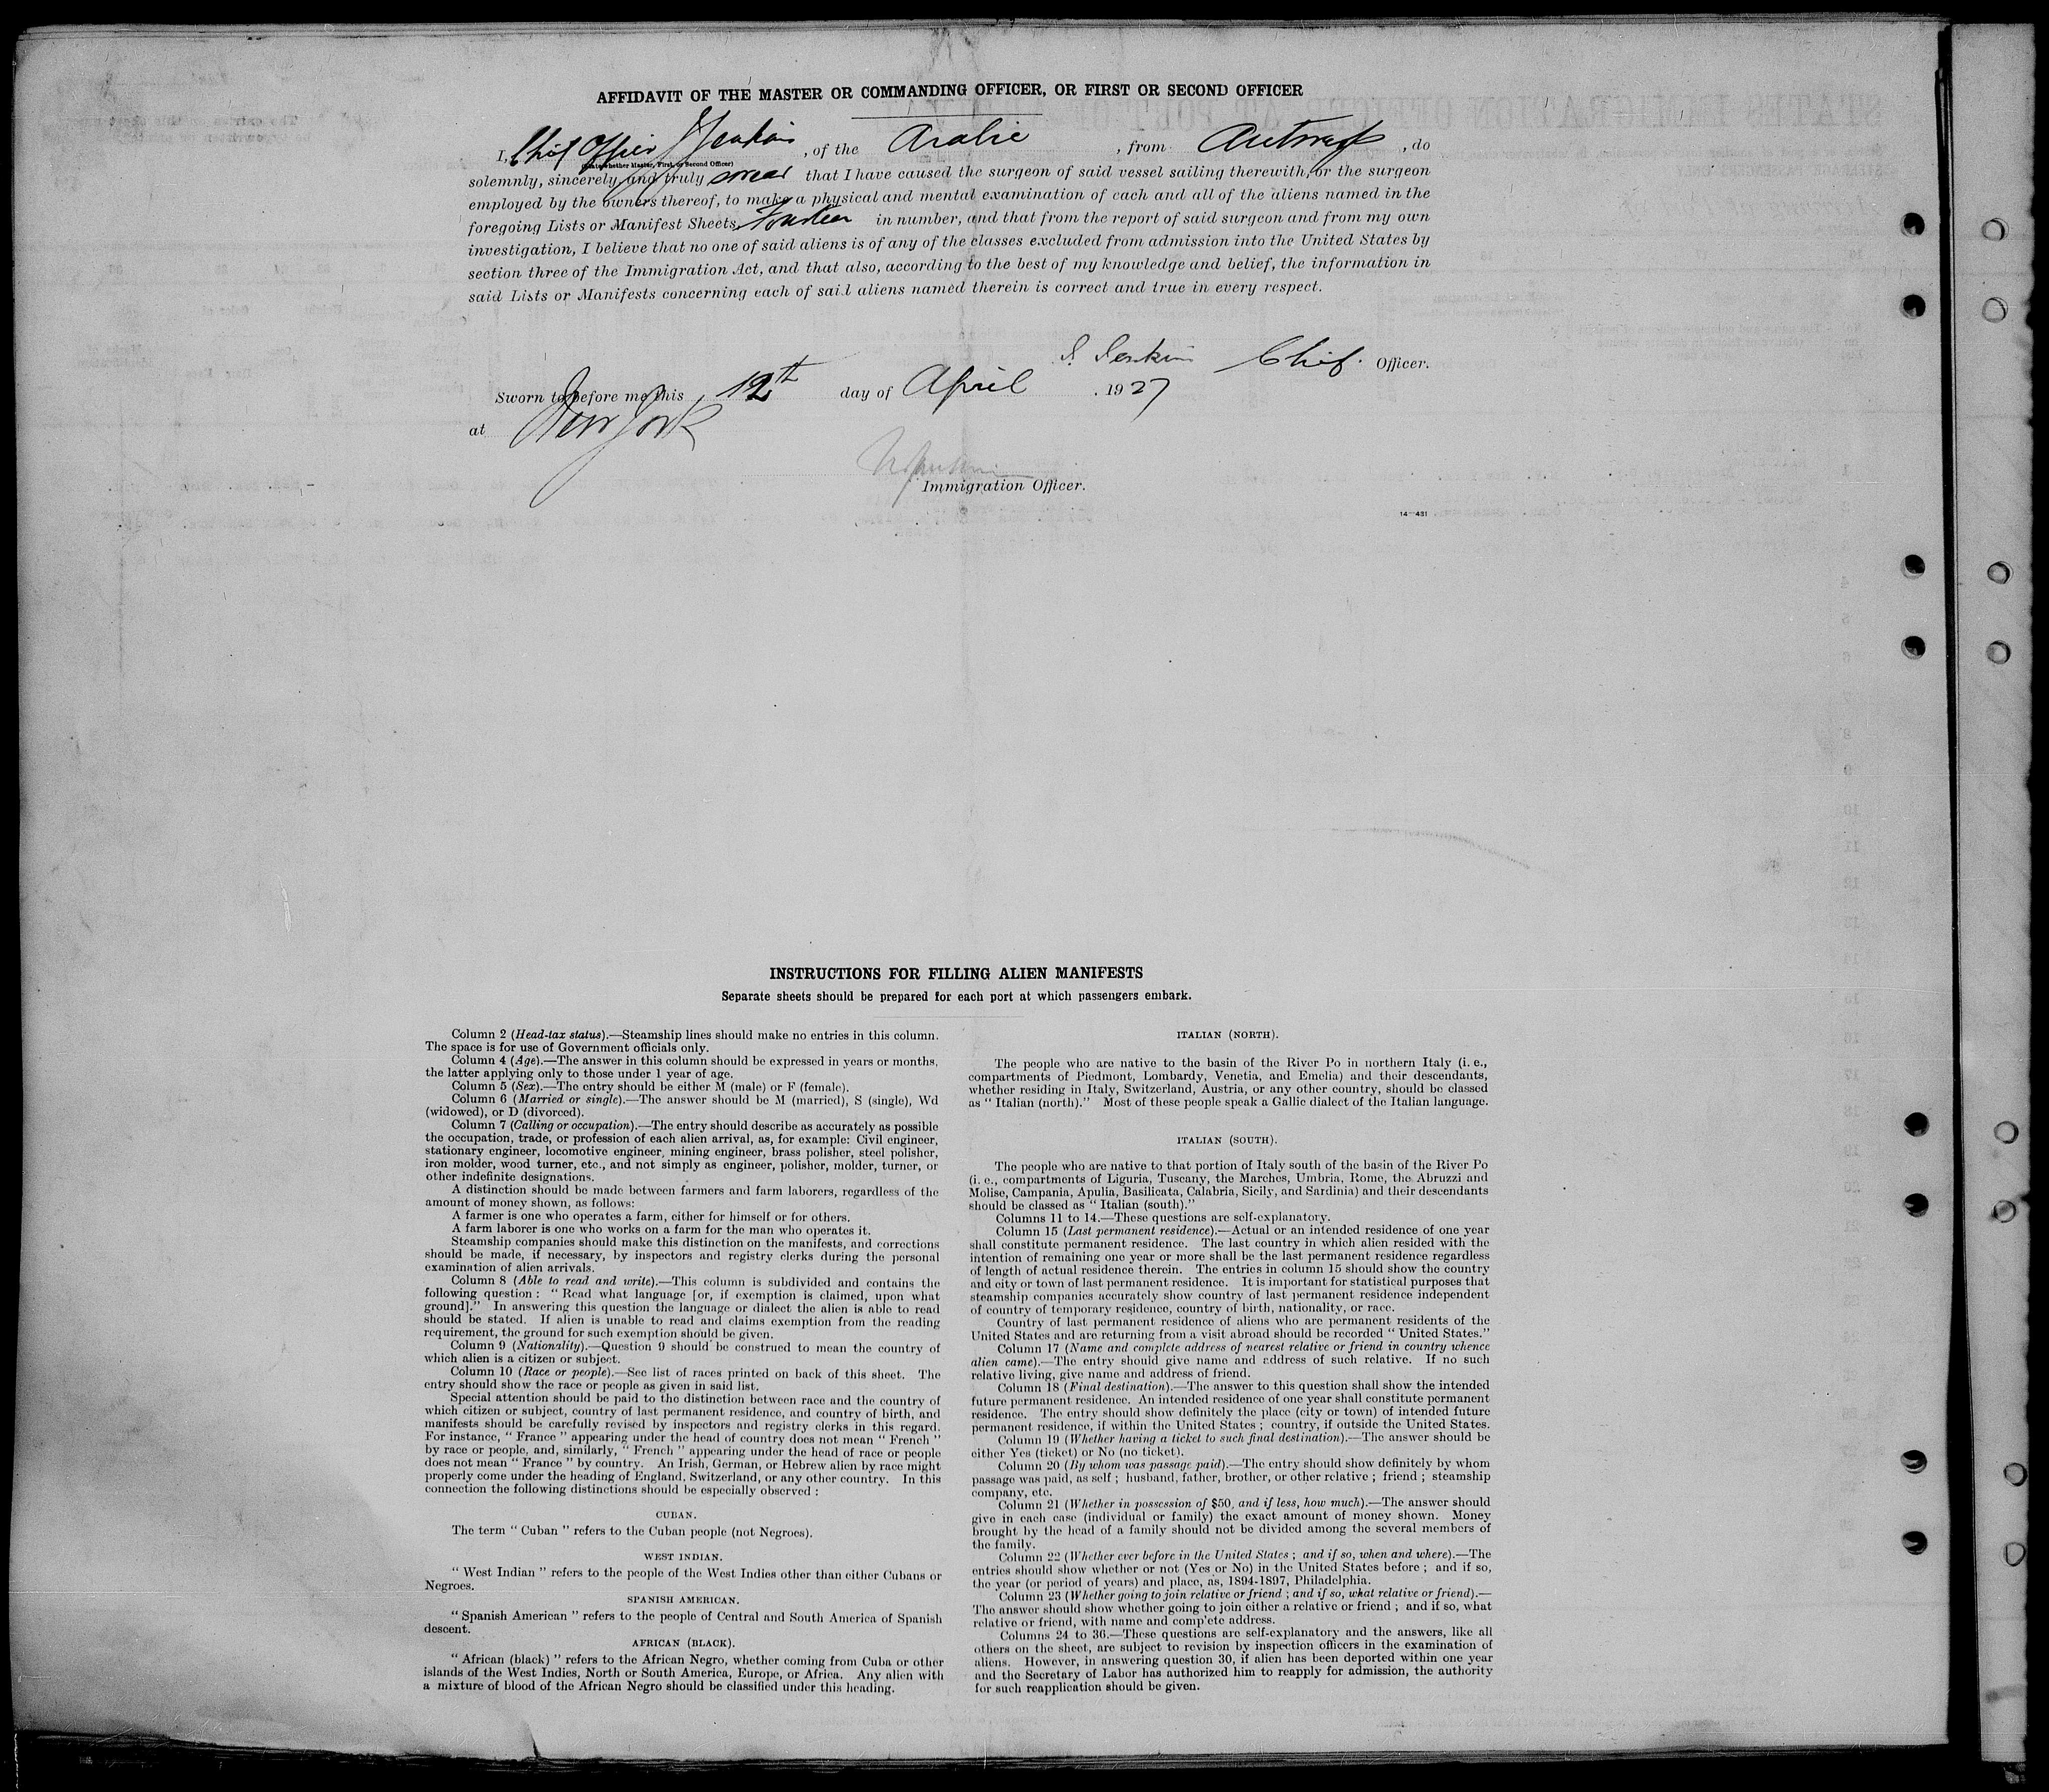 AFFIDAVIT OF THE MASTER OR COMMANDING OFFICER, OR FIRST OR SECOND OFFICER
I, Chief Officer J Jenkins, of the Arabic, from Antwerp, do
(State whether Master, First, or Second Officer)
solemnly, sincerely and truly swear that I have caused the surgeon of said vessel sailing therewith, or the surgeon
employed by the owners thereof, to make a physical and mental examination of each and all of the aliens named in the
foregoing Lists or Manifest Sheets, fourteen in number, and that from the report of said surgeon and from my own
investigation, I believe that no one of said aliens is of any of the classes excluded from admission into the United States by
section three of the Immigration Act, and that also, according to the best of my knowledge and belief, the information in
said Lists or Manifests concerning each of said aliens named therein is correct and true in every respect.
J. Jenkins Chief. Officer.
Sworn to before me this 12th day of April, 1927
at New York
Immigration Officer.
14—431
INSTRUCTIONS FOR FILLING ALIEN MANIFESTS
Separate sheets should be prepared for each port at which passengers embark.
Column 2 (Head-tax status).—Steamship lines should make no entries in this column.
The space is for use of Government officials only.
Column 4 (Age).—The answer in this column should be expressed in years or months,
the latter applying only to those under 1 year of age.
Column 5 (Sex).—The entry should be either M (male) or F (female).
Column 6 (Married or single).—The answer should be M (married), S (single), Wd
(widowed), or D (divorced).
Column 7 (Calling or occupation).—The entry should describe as accurately as possible
the occupation, trade, or profession of each alien arrival, as, for example: Civil engineer,
stationary engineer, locomotive engineer, mining engineer, brass polisher, steel polisher,
iron molder, wood turner, etc., and not simply as engineer, polisher, molder, turner, or
other indefinite designations.
A distinction should be made between farmers and farm laborers, regardless of the
amount of money shown, as follows:
A farmer is one who operates a farm, either for himself or for others.
A farm laborer is one who works on a farm for the man who operates it.
Steamship companies should make this distinction on the manifests, and corrections
should be made, if necessary, by inspectors and registry clerks during the personal
examination of alien arrivals.
Column 8 (Able to read and write).—This column is subdivided and contains the
following question: "Read what language [or, if exemption is claimed, upon what
ground]." In answering this question the language or dialect the alien is able to read
should be stated. If alien is unable to read and claims exemption from the reading
requirement, the ground for such exemption should be given.
Column 9 (Nationality).—Question 9 should be construed to mean the country of
which alien is a citizen or subject.
Column 10 (Race or people).—See list of races printed on back of this sheet. The
entry should show the race or people as given in said list.
Special attention should be paid to the distinction between race and the country of
which citizen or subject, country of last permanent residence, and country of birth, and
manifests should be carefully revised by inspectors and registry clerks in this regard.
For instance, "France" appearing under the head of country does not mean "French"
by race or people, and, similarly, "French" appearing under the head of race or people
does not mean "France" by country. An Irish, German, or Hebrew alien by race might
properly come under the heading of England, Switzerland, or any other country. In this
connection the following distinctions should be especially observed:
CUBAN.
The term "Cuban" refers to the Cuban people (not Negroes).
WEST INDIAN.
"West Indian" refers to the people of the West Indies other than either Cubans or
Negroes.
SPANISH AMERICAN.
"Spanish American" refers to the people of Central and South America of Spanish
descent.
AFRICAN (BLACK).
"African (black)" refers to the African Negro, whether coming from Cuba or other
islands of the West Indies, North or South America, Europe, or Africa. Any alien with
a mixture of blood of the African Negro should be classified under this heading.
ITALIAN (NORTH).
The people who are native to the basin of the River Po in northern Italy (i. e.,
compartments of Piedmont, Lombardy, Venetia, and Emelia) and their descendants,
whether residing in Italy, Switzerland, Austria, or any other country, should be classed
as "Italian (north)." Most of these people speak a Gallic dialect of the Italian language.
ITALIAN (SOUTH).
The people who are native to that portion of Italy south of the basin of the River Po
(i. e., compartments of Liguria, Tuscany, the Marches, Umbria, Rome, the Abruzzi and
Molise, Campania, Apulia, Basilicata, Calabria, Sicily, and Sardinia) and their descendants
should be classed as "Italian (south)."
Columns 11 to 14.—These questions are self-explanatory.
Column 15 (Last permanent residence).—Actual or an intended residence of one year
shall constitute permanent residence. The last country in which alien resided with the
intention of remaining one year or more shall be the last permanent residence regardless
of length of actual residence therein. The entries in column 15 should show the country
and city or town of last permanent residence. It is important for statistical purposes that
steamship companies accurately show country of last permanent residence independent
of country of temporary residence, country of birth, nationality, or race.
Country of last permanent residence of aliens who are permanent residents of the
United States and are returning from a visit abroad should be recorded "United States."
Column 17 (Name and complete address of nearest relative or friend in country whence
alien came).—The entry should give name and address of such relative. If no such
relative living, give name and address of friend.
Column 18 (Final destination).—The answer to this question shall show the intended
future permanent residence. An intended residence of one year shall constitute permanent
residence. The entry should show definitely the place (city or town) of intended future
permanent residence, if within the United States; country, if outside the United States.
Column 19 (Whether having a ticket to such final destination).—The answer should be
either Yes (ticket) or No (no ticket).
Column 20 (By whom was passage paid).—The entry should show definitely by whom
passage was paid, as self; husband, father, brother, or other relative; friend; steamship
company, etc.
Column 21 (Whether in possession of $50, and if less, how much).—The answer should
give in each case (individual or family) the exact amount of money shown. Money
brought by the head of a family should not be divided among the several members of
the family.
Column 22 (Whether ever before in the United States; and if so, when and where).—The
entries should show whether or not (Yes or No) in the United States before; and if so,
the year (or period of years) and place, as, 1894-1897, Philadelphia.
Column 23 (Whether going to join relative or friend; and if so, what relative or friend).—
The answer should show whether going to join either a relative or friend; and if so, what
relative or friend, with name and complete address.
Columns 24 to 36.—These questions are self-explanatory and the answers, like all
others on the sheet, are subject to revision by inspection officers in the examination of
aliens. However, in answering question 30, if alien has been deported within one year
and the Secretary of Labor has authorized him to reapply for admission, the authority
for such reapplication should be given.